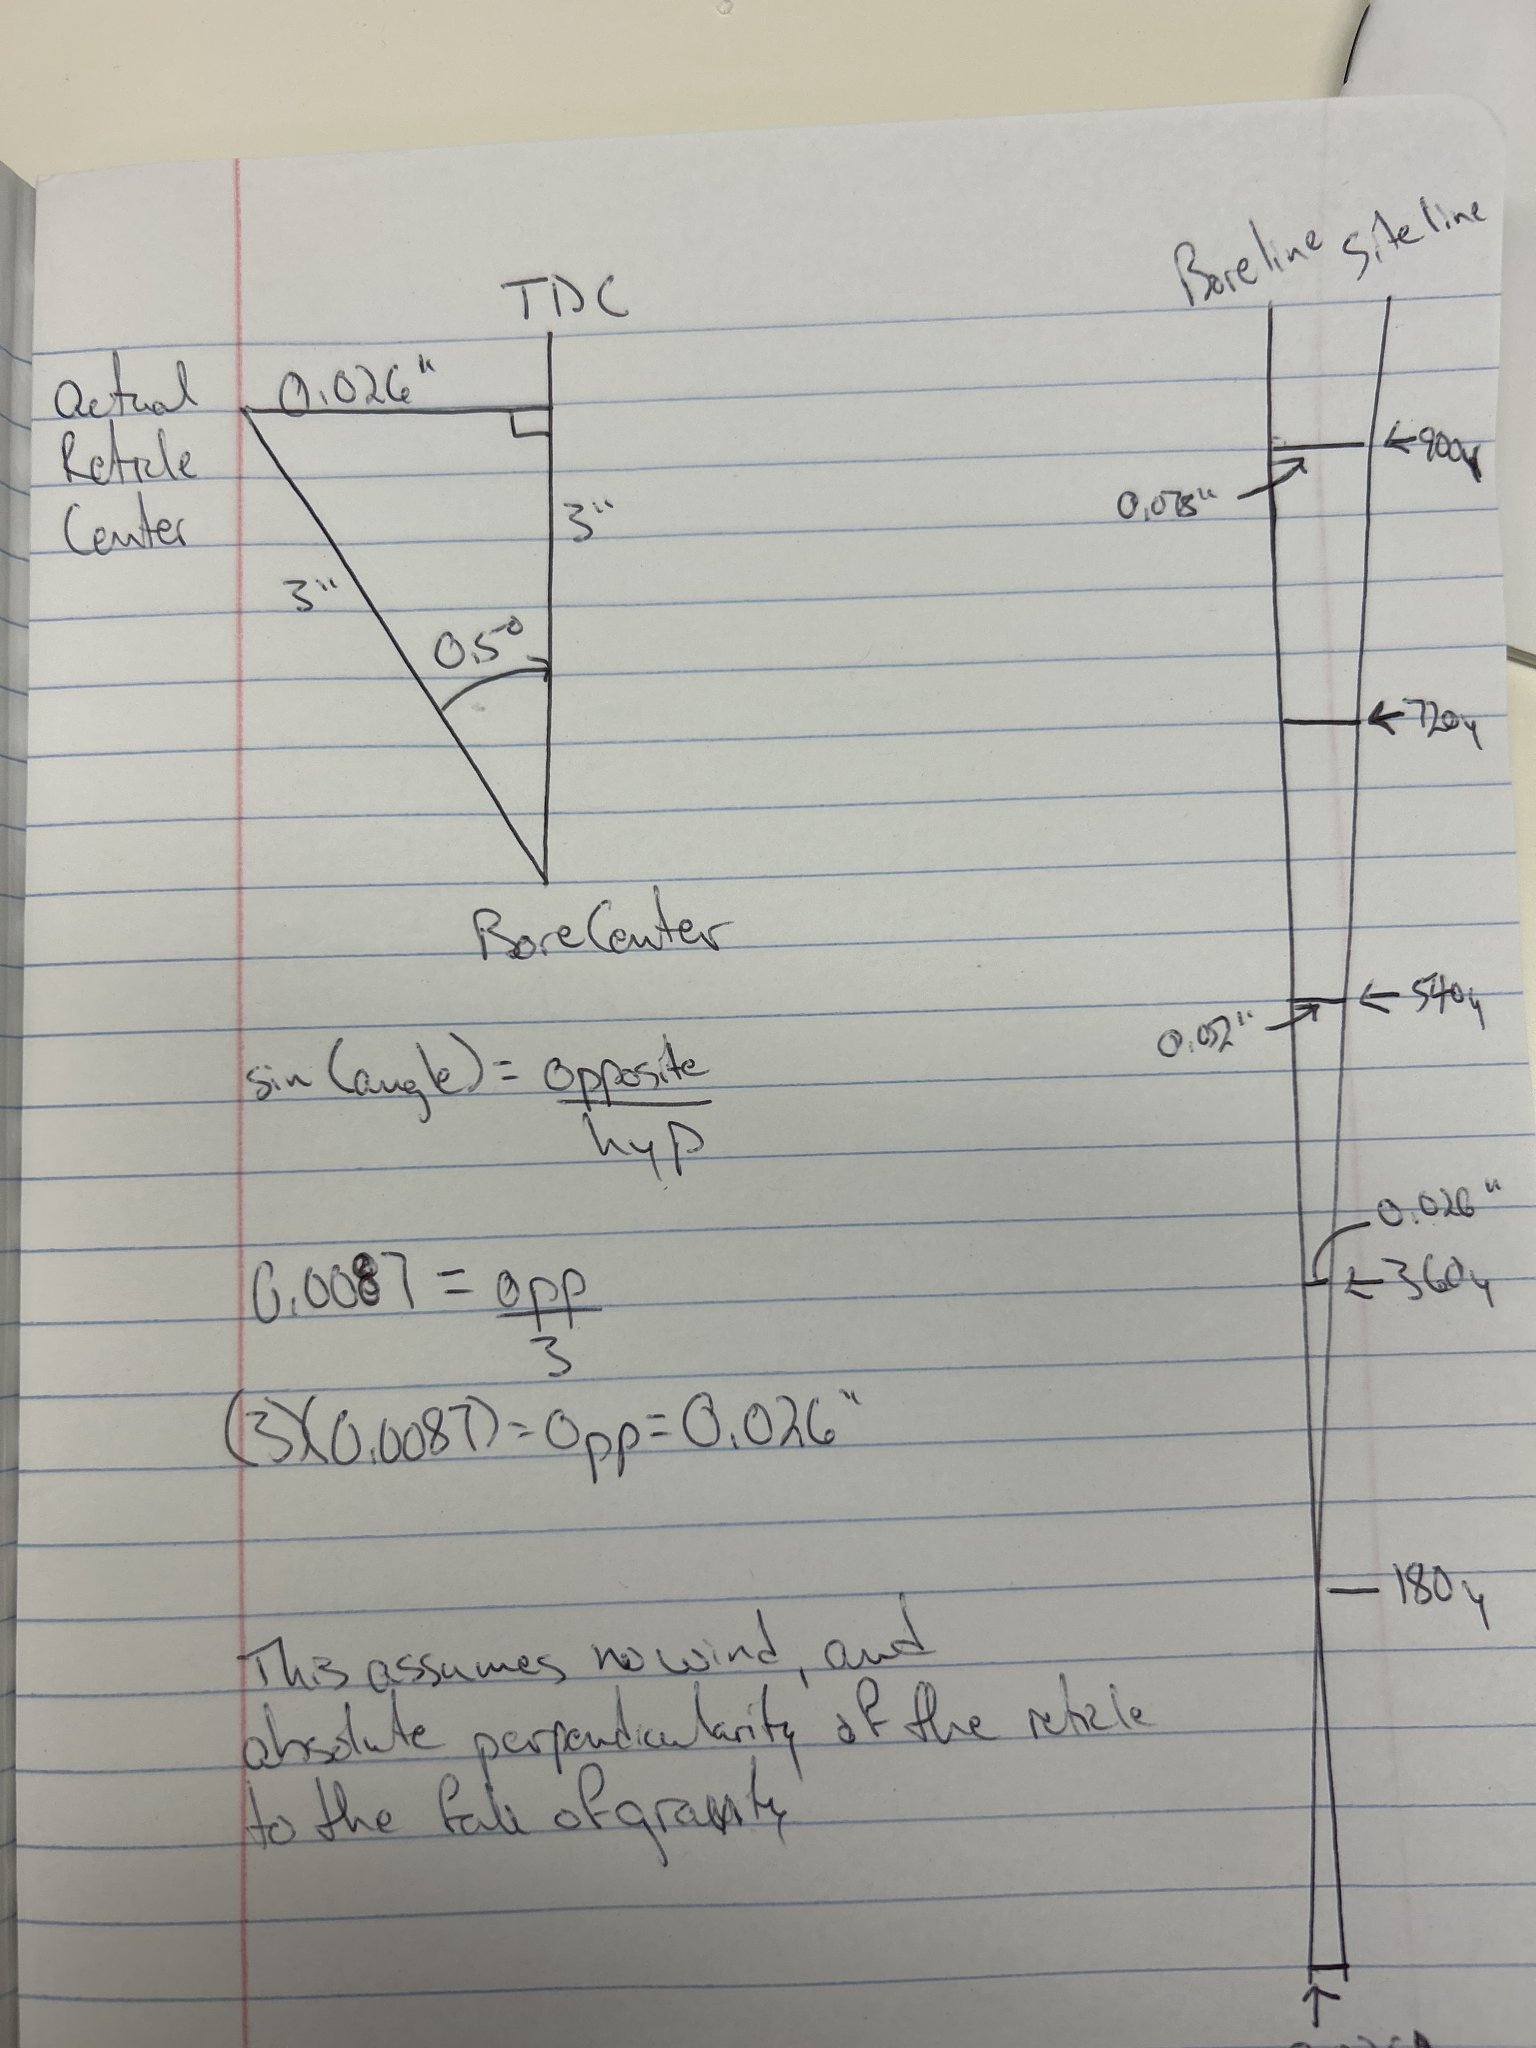 TDC
Actual
Reticle
Center
0.026"
3"
3"
0.5°
Bore Center
sin(angle) = opposite
hyp
0.0087 = opp
3
(3)(0.0087) = opp = 0.026"
This assumes no wind, and
absolute perpendicularity of the reticle
to the fall of gravity
Boreline Siteline
←900y
0.078"
←720y
←540y
0.052"
0.026"
←360y
— 180y
↑